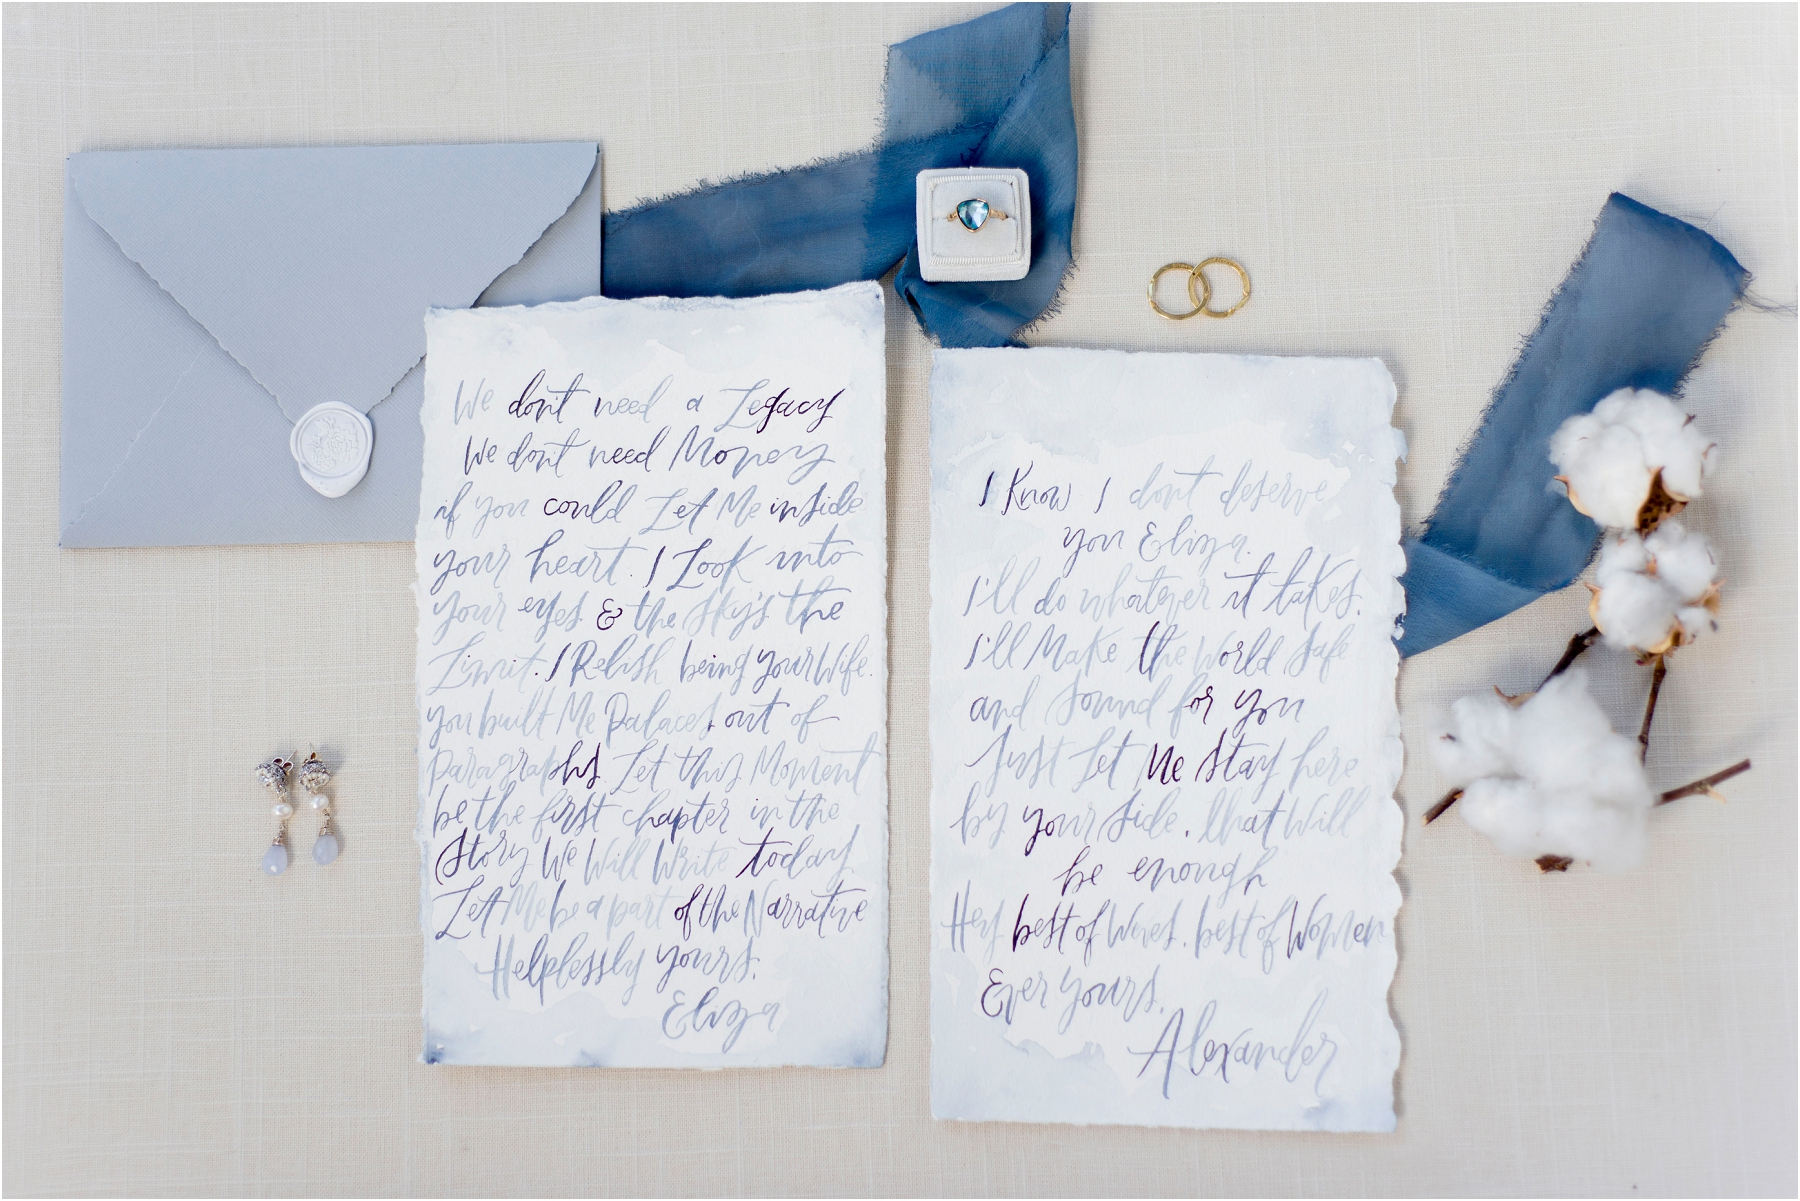 We don't need a Legacy
We don't need Money
if you could Let Me inside
your heart. I Look into
your eyes & the sky's the
Limit. I Relish being your Wife.
you built Me Palaces out of
Paragraphs. Let this Moment
be the first chapter in the
Story We Will Write today
Let Me be a part of the Narrative
Helplessly yours,
Eliza
I Know I don't deserve
you Eliza.
I'll do whatever it takes.
I'll Make the World Safe
and Sound for you
Just Let Me Stay here
by your Side. That Will
be enough
Hey best of Wives, best of Women
Ever yours,
Alexander